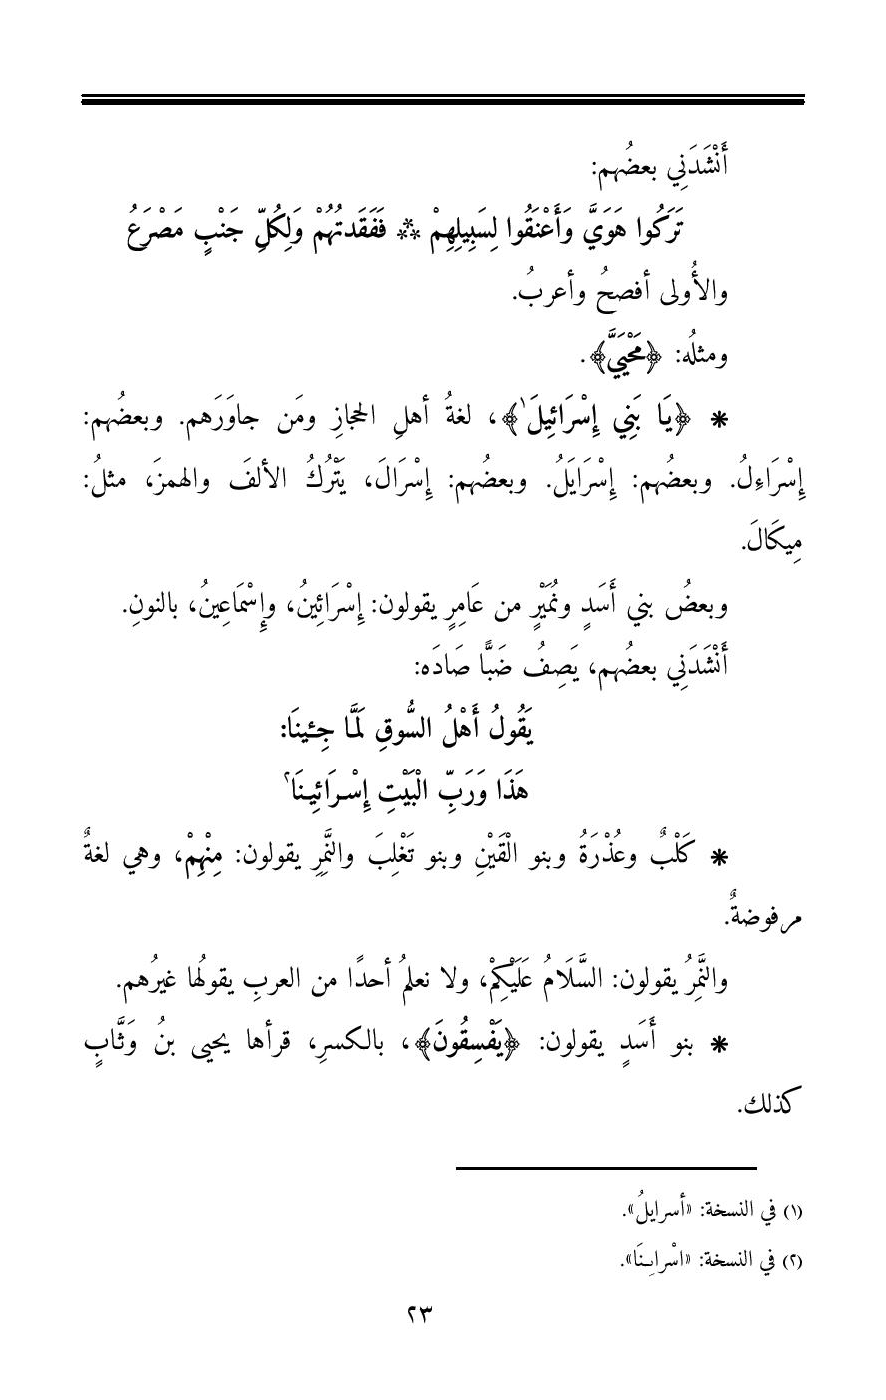 أَنْشَدَنِي بعضُهم:
تَرَكُوا هَوَيَّ وَأَعْنَقُوا لِسَبِيلِهِمْ ⁂ فَفَقَدتُهُمْ وَلِكُلِّ جَنْبٍ مَصْرَعُ
والأُولى أفصحُ وأعربُ.
ومثلُه: ﴿مَحْيَيَّ﴾.
* ﴿يَا بَنِي إِسْرَائِيلَ﴾(١)، لغةُ أهلِ الحجازِ ومَن جاوَرَهم. وبعضُهم:
إِسْرَاءِلُ. وبعضُهم: إِسْرَايَلُ. وبعضُهم: إِسْرَالَ، يَتْرُكُ الألفَ والهمزَ، مثلُ:
مِيكَالَ.
وبعضُ بني أَسَدٍ ونُمَيْرٍ من عَامِرٍ يقولون: إِسْرَائِينُ، وإِسْمَاعِينُ، بالنونِ.
أَنْشَدَنِي بعضُهم، يَصِفُ ضَبًّا صَادَه:
يَقُولُ أَهْلُ السُّوقِ لَمَّا جِئِينَا:
هَذَا وَرَبِّ الْبَيْتِ إِسْرَائِينَا(٢)
* كَلْبٌ وعُذْرَةُ وبنو الْقَيْنِ وبنو تَغْلِبَ والنَّمِرِ يقولون: مِنْهِمْ، وهي لغةٌ
مرفوضةٌ.
والنَّمِرُ يقولون: السَّلَامُ عَلَيْكِمْ، ولا نعلمُ أحدًا من العربِ يقولُها غيرُهم.
* بنو أَسَدٍ يقولون: ﴿يَفْسِقُونَ﴾، بالكسرِ، قرأها يحيى بنُ وَثَّابٍ
كذلك.
(١) في النسخة: «أسرايلُ».
(٢) في النسخة: «اسْرايـنَا».
٢٣